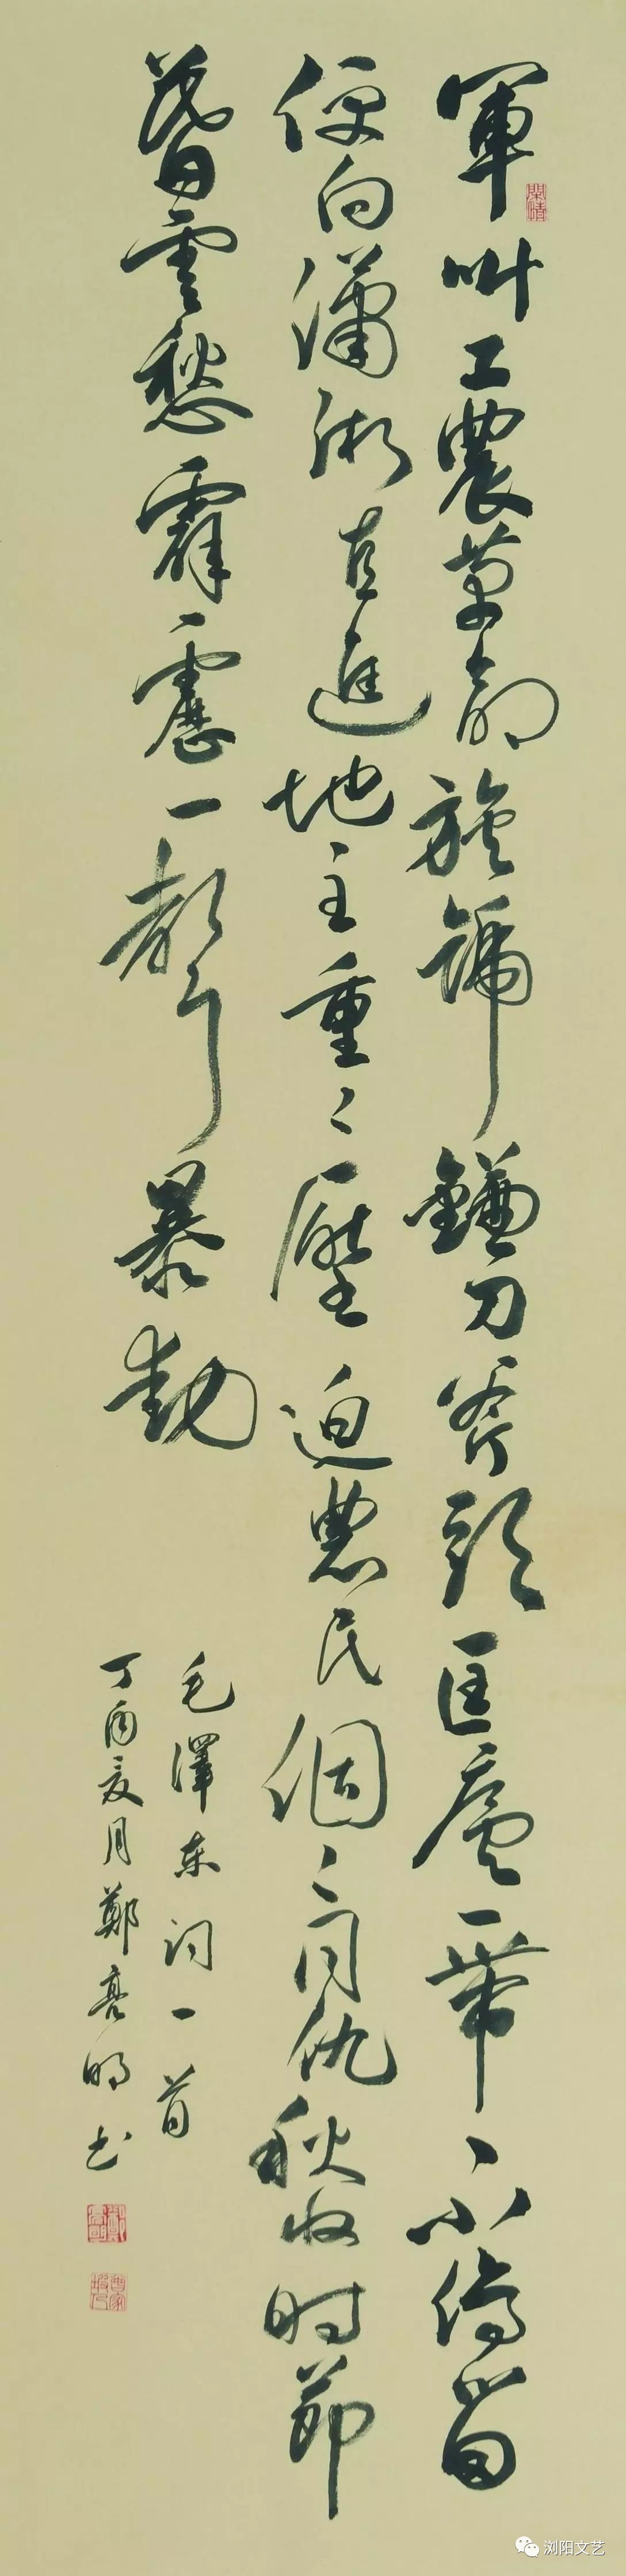 軍叫工農革命旗號鐮刀斧頭匡廬一帶不停留
便向瀟湘直進地主重重壓迫農民個個同仇秋收时節
暮雲愁霹靂一聲暴動
毛澤东詞一首
丁酉夏月鄭亮明书
浏阳文艺